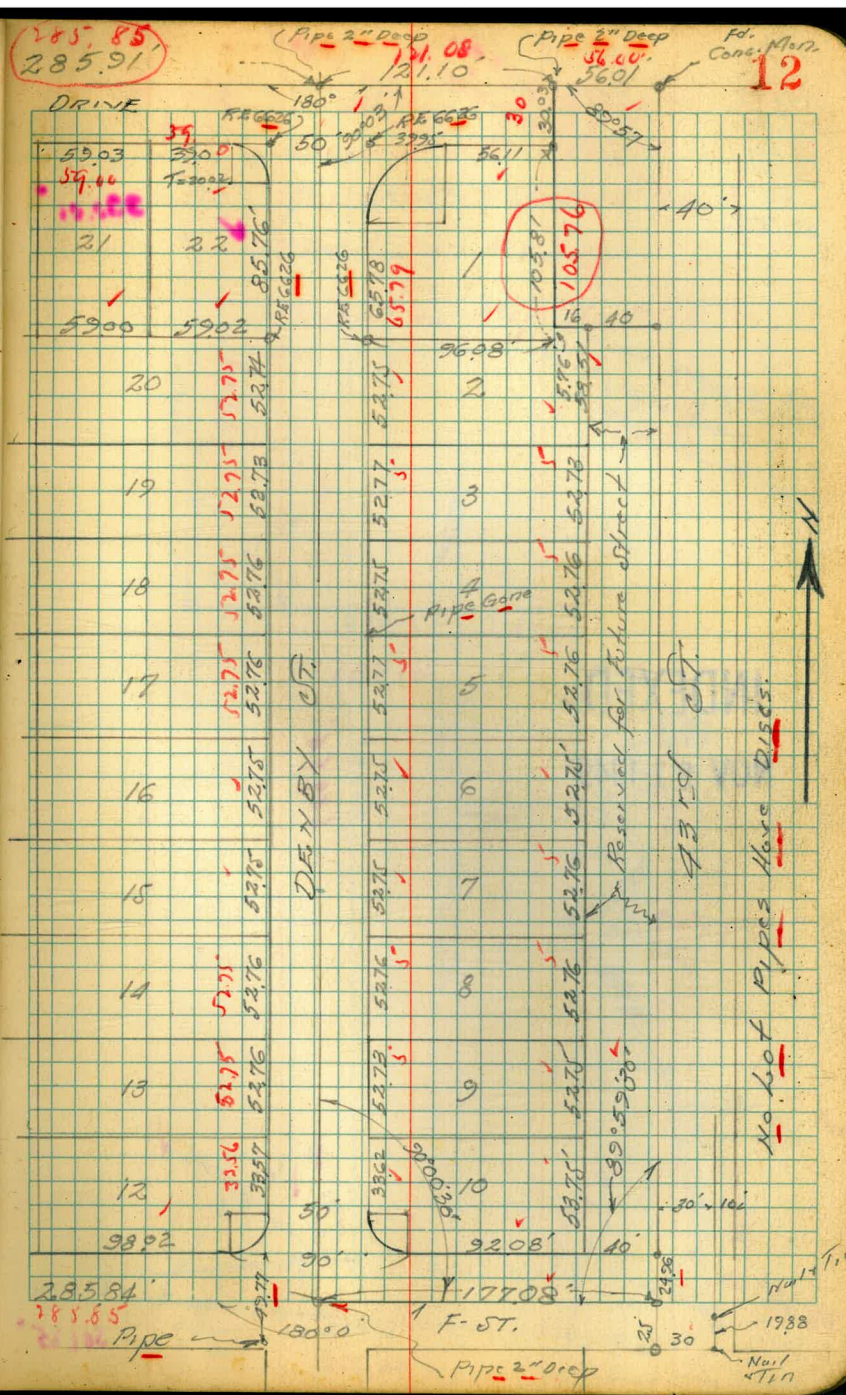 285.85
285.91'
Pipe 2" Deep
121.08
121.10'
Pipe 3" Deep
56.00'
56.01
Fd.
Conc. Mon.
12
DRIVE
180°
RE 6626
50'
90°03'
RE 6626
39.95
30
30.03
89°57'
59.03
59.00
39.00
T=20.02
56.11
40'
21
22
85.76'
RE 6626
RE 6626
65.78
65.79
1
105.81
105.76
59.00
59.02
96.08'
16
40
20
52.75
52.74
52.75
2
5.76
19
52.75
52.73
52.77
5
3
5
52.73
18
52.75
52.76
52.75
4
5
52.76
Pipe Gone
17
52.75
52.76
52.77
5
5
5
52.76
16
52.75
52.75
6
52.75'
15
52.75
52.75
7
5
52.76
14
52.75
52.76
52.76
5
8
5
52.76
13
52.75
52.76
52.73
5
9
52.75
12
33.56
33.57
33.62
10
53.75'
DENBY ST.
Reserved for Future Street
43rd ST.
N
No Lot Pipes Have Discs.
89°59'30"
98.02
50'
90'
92.08'
40'
30'
285.84'
285.85
49.77
177.08'
24.96
Pipe
180°0'
F- ST.
25
30
19.88
Nail & Tin
Nail & Tin
Pipe 2" Deep